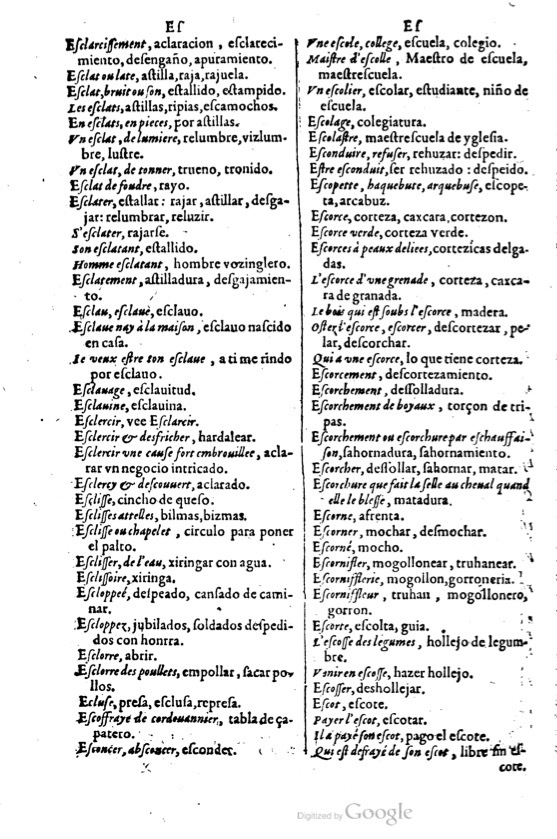 Es
Esclarcissement, aclaracion, esclareci-
miento, desengaño, apuramiento.
Esclat ou late, astilla, raja, rajuela.
Esclat, bruit ou son, estallido, estampido.
Les esclats, astillas, ripias, escamochos.
En esclats, en pieces, por astillas.
Vn esclat, de lumiere, relumbre, vizlum-
bre, lustre.
Vn esclat, de tonner, trueno, tronido.
Esclat de foudre, rayo.
Esclater, estallar: rajar, astillar, desga-
jar: relumbrar, reluzir.
S'esclater, rajarse.
Son esclatant, estallido.
Homme esclatant, hombre vozinglero.
Esclatement, astilladura, desgajamien-
to.
Esclau, esclauè, esclauo.
Esclaue nay à la maison, esclauo nascido
en casa.
Ie veux estre ton esclaue, a ti me rindo
por esclauo.
Esclauage, esclauitud.
Esclauine, esclauina.
Esclercir, vee Esclarcir.
Esclercir & desfricher, hardalear.
Esclercir vne cause fort embrouillee, acla-
rar vn negocio intricado.
Esclercy & descouuert, aclarado.
Esclisse, cincho de queso.
Esclisses attelles, bilmas, bizmas.
Esclisse ou chapelet, circulo para poner
el palto.
Esclisser, de l'eau, xiringar con agua.
Esclissoire, xiringa.
Escloppeé, despeado, cansado de cami-
nar.
Escloppez, jubilados, soldados despedi-
dos con honrra.
Esclorre, abrir.
Esclorre des poullets, empollar, sacar po-
llos.
Ecluse, presa, esclusa, represa.
Escoffraye de cordouannier, tabla de ça-
patero.
Esconcer, absconcer, esconder.
Es
Vne escole, college, escuela, colegio.
Maistre d'escolle, Maestro de escuela,
maestrescuela.
Vn escolier, escolar, estudiante, niño de
escuela.
Escolage, colegiatura.
Escolastre, maestrescuela de yglesia.
Esconduire, refuser, rehuzar: despedir.
Estre esconduit, ser rehuzado: despeido.
Escopette, haquebute, arquebuse, escope-
ta, arcabuz.
Escorce, corteza, caxcara, cortezon.
Escorce verde, corteza verde.
Escorces à peaux deliees, cortezicas delga-
das.
L'escorce d'vne grenade, corteza, caxca-
ra de granada.
Le bois qui est soubs l'escorce, madera.
Oster l'escorce, escorcer, descortezar, pe-
lar, descorchar.
Qui a vne escorce, lo que tiene corteza.
Escorcement, descortezamiento.
Escorchement, dessolladura.
Escorchement de boyaux, torçon de tri-
pas.
Escorchement ou escorchure par eschauffai-
son, sahornadura, sahornamiento.
Escorcher, dessollar, sahornar, matar.
Escorchure que fait la selle au cheual quand
elle le blesse, matadura.
Escorne, afrenta.
Escorner, mochar, desmochar.
Escorné, mocho.
Escornifler, mogollonear, truhanear.
Escornifflerie, mogollon, gorroneria.
Escorniffleur, truhan, mogollonero,
gorron.
Escorte, escolta, guia.
L'escosse des legumes, hollejo de legum-
bre.
Venir en escosse, hazer hollejo.
Escosser, deshollejar.
Escot, escote.
Payer l'escot, escotar.
Il a payé son escot, pago el escote.
Qui est defrayé de son escot, libre sin es-
cote.
Digitized by Google